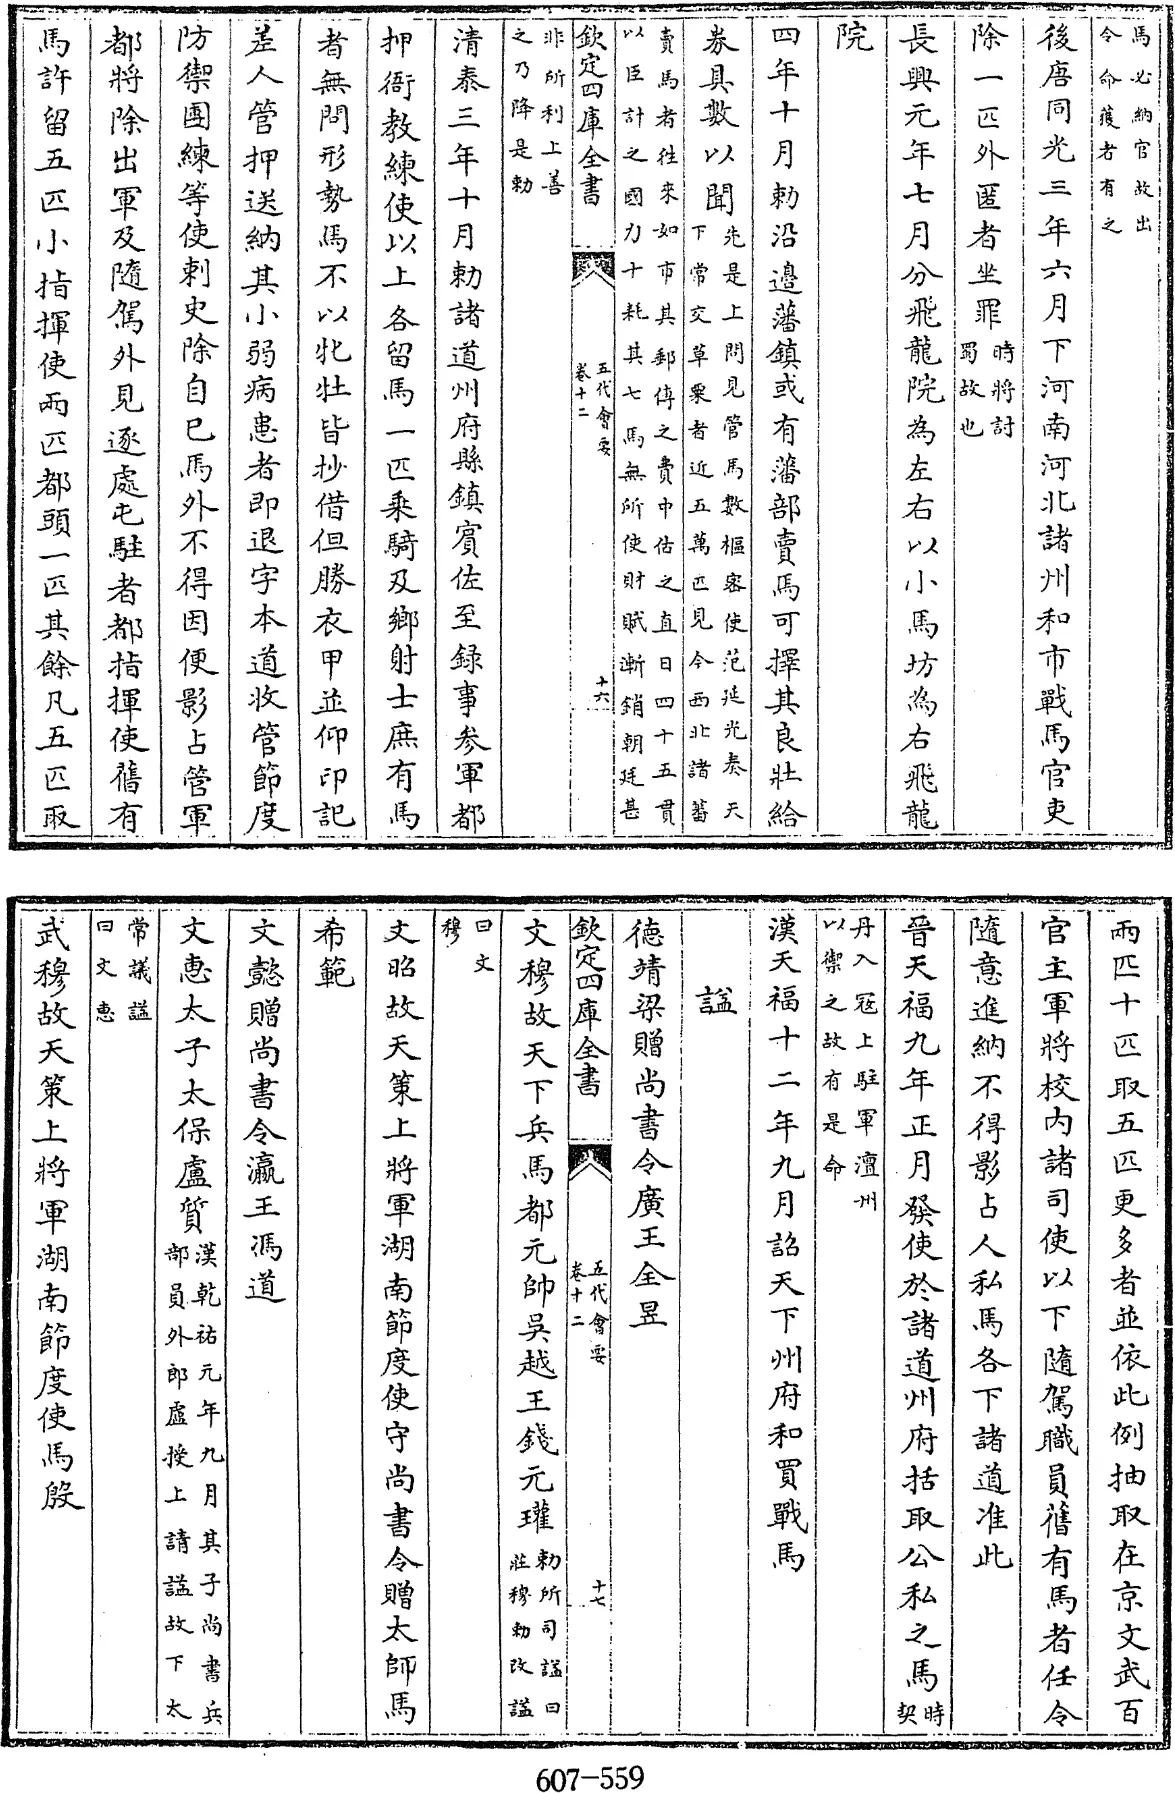 馬必納官故出
令命獲者有之
後唐同光三年六月下河南河北諸州和市戰馬官吏
除一匹外匿者坐罪時將討
蜀故也
長興元年七月分飛龍院為左右以小馬坊為右飛龍
院
四年十月勅沿邊藩鎮或有蕃部賣馬可擇其良壯給
券具數以聞先是上問見管馬數樞密使范延光奏天
下常交草粟者近五萬匹見今西北諸蕃
賣馬者往來如市其郵傳之費中估之直日四十五貫
以臣計之國力十耗其七馬無所使財賦漸銷朝廷甚
欽定四庫全書
五代會要
卷十二
十六
非所利上善
之乃降是勅
清泰三年十月勅諸道州府縣鎮賓佐至録事参軍都
押衙教練使以上各留馬一匹乗騎及鄉射士庶有馬
者無問形勢馬不以牝牡皆抄借但勝衣甲並仰印記
差人管押送納其小弱病患者即退字本道收管節度
防禦團練等使刺史除自已馬外不得因便影占管軍
都將除出軍及隨駕外見逐處屯駐者都指揮使舊有
馬許留五匹小指揮使兩匹都頭一匹其餘凡五匹取
兩匹十匹取五匹更多者並依此例抽取在京文武百
官主軍將校内諸司使以下隨駕職員舊有馬者任令
隨意進納不得影占人私馬各下諸道准此
晉天福九年正月發使於諸道州府括取公私之馬時
契
丹入寇上駐軍澶州
以禦之故有是命
漢天福十二年九月詔天下州府和買戰馬
諡
德靖梁贈尚書令廣王全昱
欽定四庫全書
五代會要
卷十二
十七
文穆故天下兵馬都元帥吳越王錢元瓘勅所司諡曰
莊穆勅改諡
曰文
穆
文昭故天策上將軍湖南節度使守尚書令贈太師馬
希範
文懿贈尚書令瀛王馮道
文惠太子太保盧質漢乾祐元年九月其子尚書兵
部員外郎盧損上請諡故下太
常議諡
曰文惠
武穆故天策上將軍湖南節度使馬殷
607-559